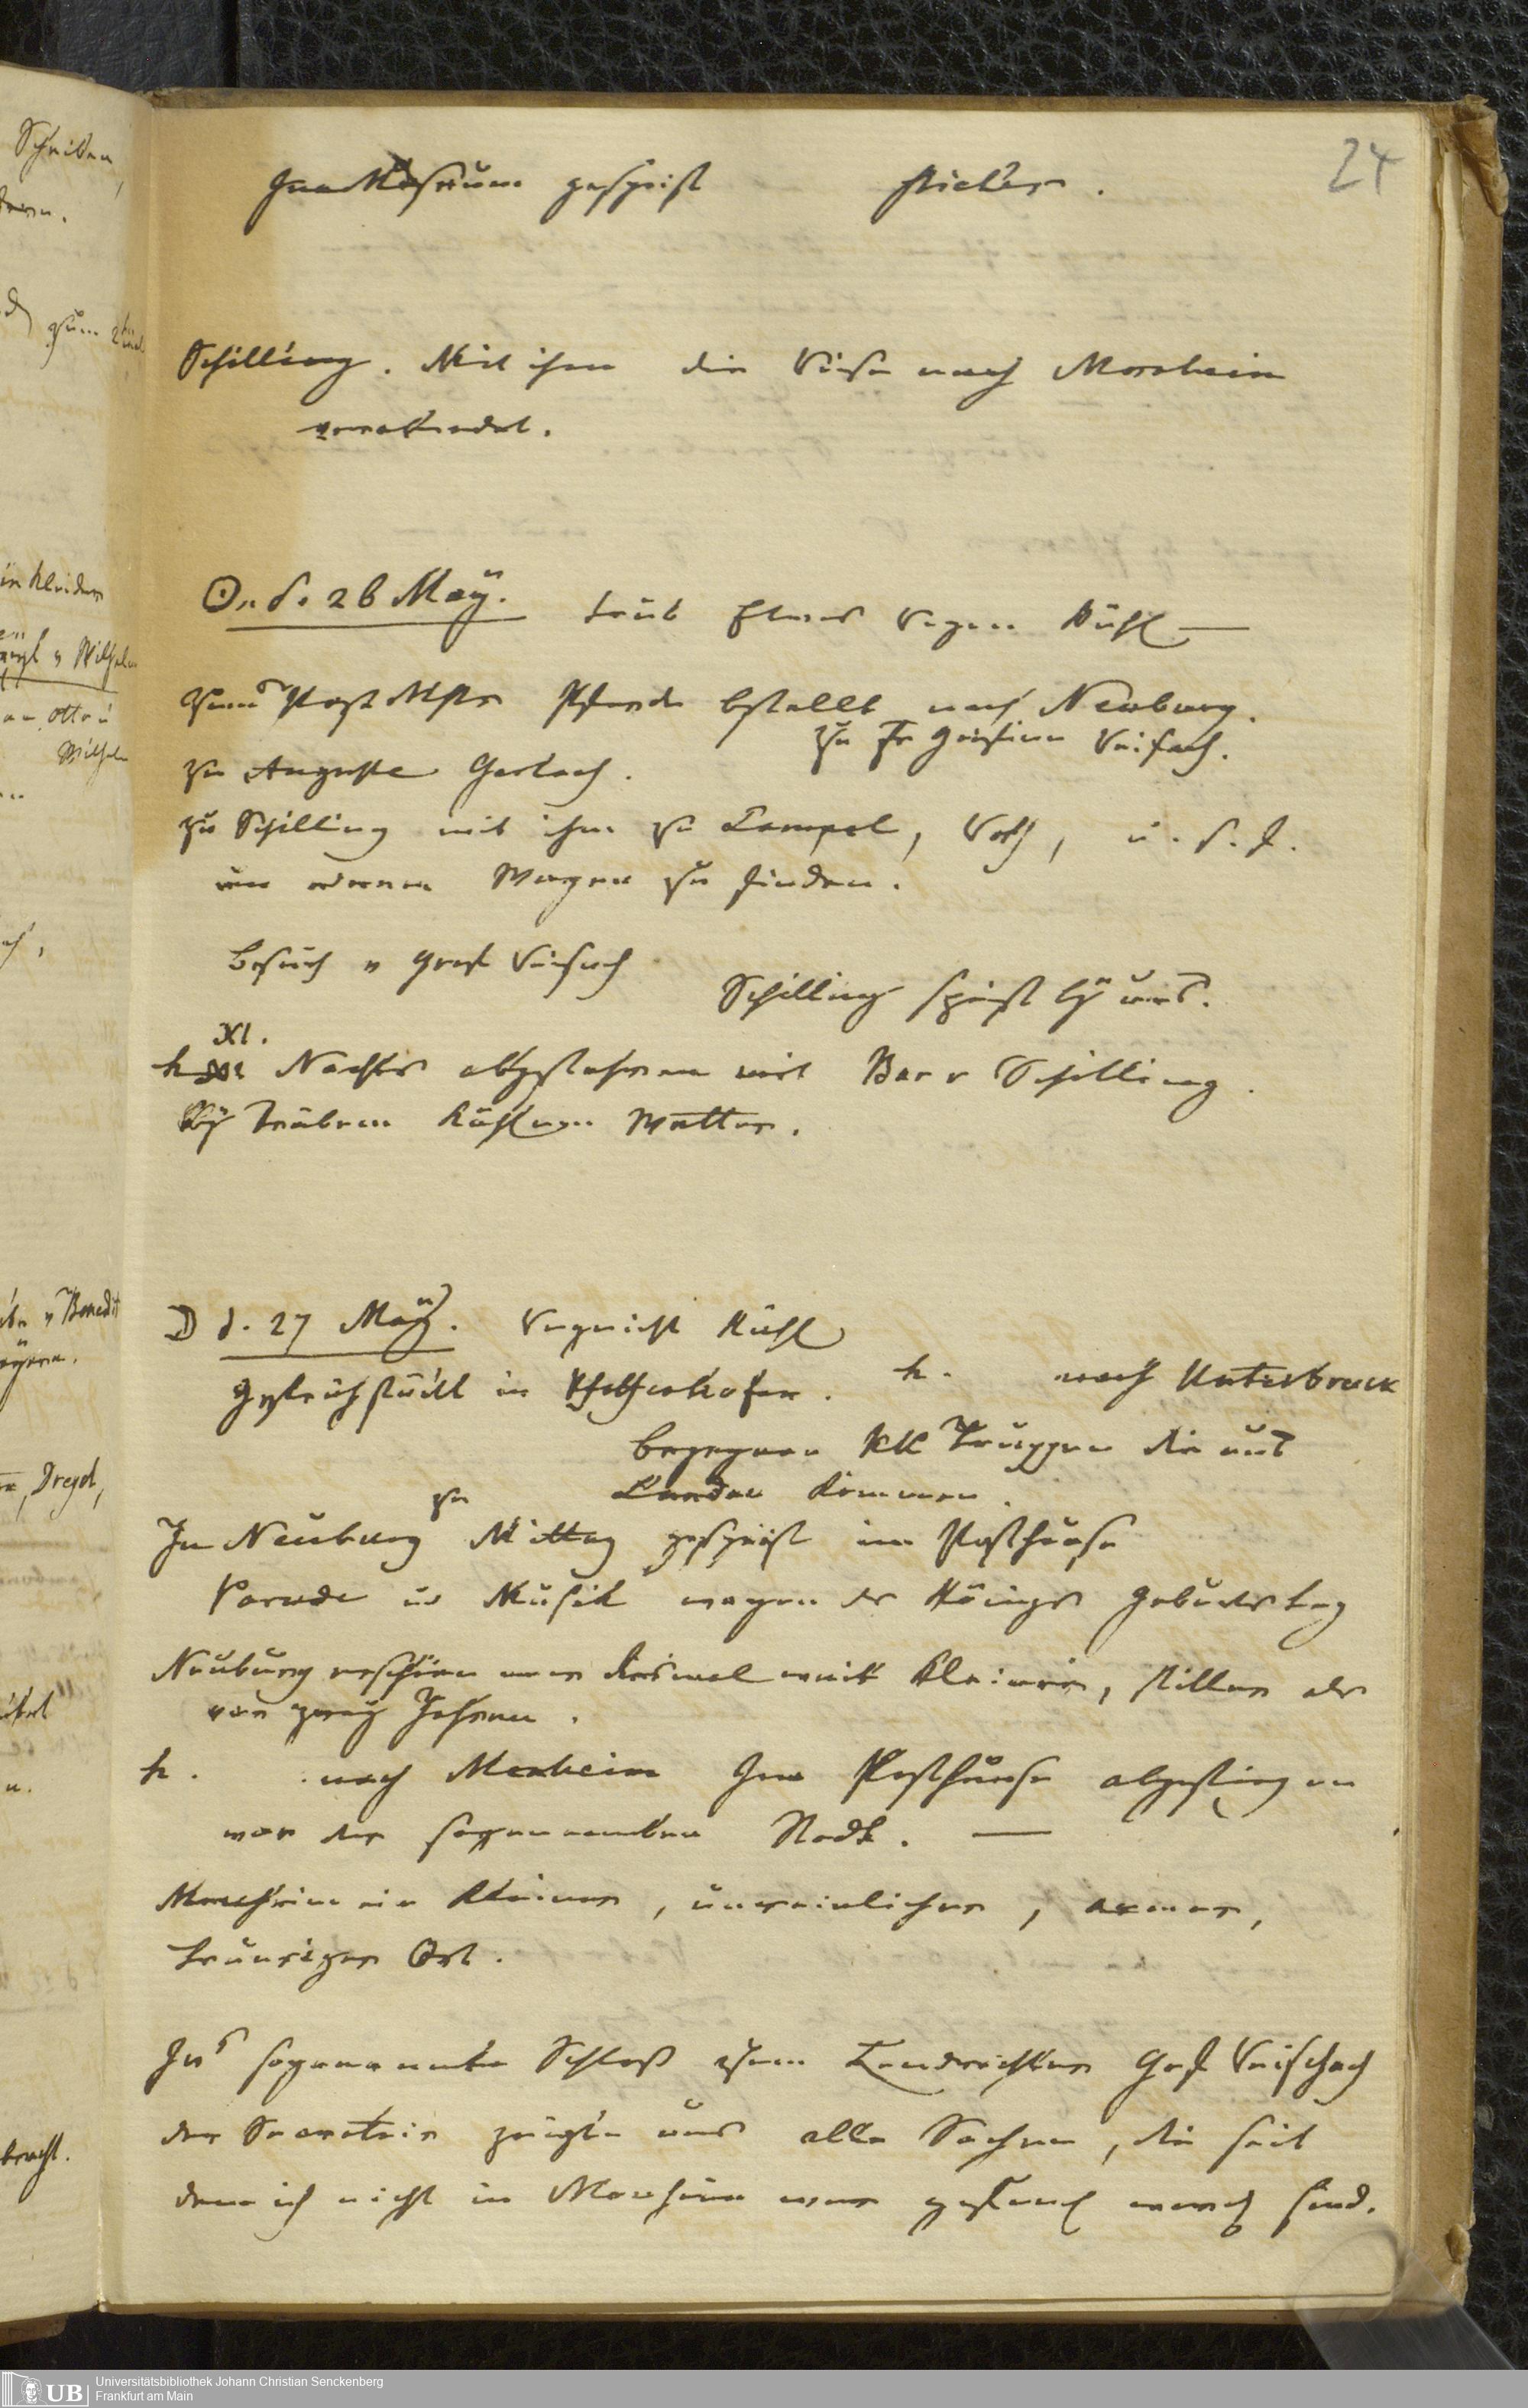 24
Im Museum gespeist
Schilling. Mit ihm die Reise nach Monheim
verabredet.
☉. d. 26 May. trüb Etwas Regen Kühl —
zum Postmstr Pferde bestellt nach Neuburg.
zu Auguste Gerlach. zu Fr Gräfinn Reisach.
zu Schilling mit ihm zu Lampel, Roth, u. s. f.
um einen Wagen zu finden.
Besuch v Graf Reisach
Schilling speist bey uns.
XI.
h Nachts abgefahren mit Bar v Schilling.
Bey trübem kühlem Wetter.
☽ d. 27 May. Regnicht Kühl
Gefrühstückt in Pfaffenhofen. h. nach Unterbruck
begegnen KK Truppen die aus
Landau kommen.
In Neuburg zu Mittag gespeist im Posthause
Parade u Musik wegen des Königs Geburtstag
Neuburg erschien mir diesmal weit kleiner, stiller als
vor zwey Jahren.
h. nach Monheim Im Posthause abgestiegen
vor der sogenannten Stadt. —
Monheim ein kleiner, unreinlicher, armer,
trauriger Ort.
Ins sogenannte Schloß zum Landrichter Graf Reischach
der Secretair zeigte uns alle Sachen, die seit
dem ich nicht in Monheim war gefunden worden sind.
Universitätsbibliothek Johann Christian Senckenberg
Frankfurt am Main
UB